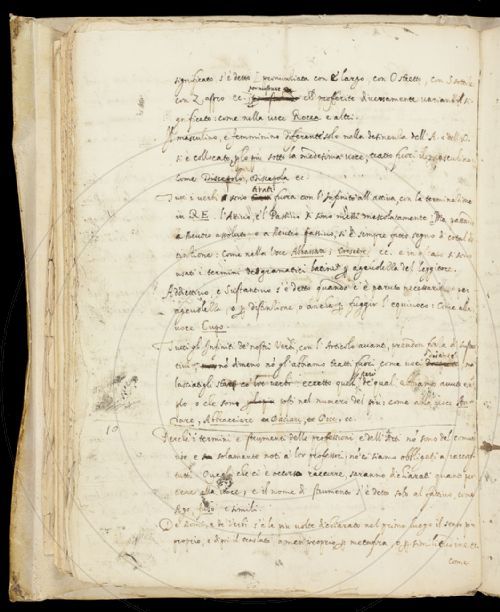 significato s'è detto pronunziata con E largo, con O stretto, con S sottile
con Z aspro ec. e proferite diversamente variando il si-
gnificato: come nella voce Rocca e altri.
Il masculino, e femminino differente solo nella desinenza dell'A e dell'O.
si è collocato, sotto la medesima voce, tratto fuori il masculino
come Discepolo, Discepola ec.
Tutti i verbi si sono tirati fuora con l'Infinito all'attiva, con la terminazione
in RE. l'Attivo, e 'l Passivo si sono messi mescolatamente. Ma passan
a Neutro assoluto o a Neutro passivo, si è sempre fatto segno di cotal di
stinzione: Come nella Voce Abbassare, Crescere, ec. e in caso si sono
usati i termini de gramatici latini p agevolezza del leggitore.
Addiettivo, e Sustantivo s'è detto quando ci è paruto necessario p
agevolezza, o p distinzione o anche p fuggir l'equivoco: Come alla
voce Cupo.
Tutti gl'Infiniti de' nostri Verbi, con l'Articolo avanti, prendon forza di sustan
tivi no' dimeno no' gli abbiamo tratti fuori, come voci
lasciatigli star co' lor verbi eccetto quelli de' quali abbiamo avuti esem
plo o che sono usati nel numero del più: come alla voce
Abbracciare ec Baciari, ec Pec. ec.
10
Perchè i termini e strumenti delle professioni e dell'Arti no' sono del comune
uso e solamente noti a lor professori; no' ci siamo obbligati a raccor
tutti. Quegli che ci è occorso raccorre, saranno dichiarati quanto per
tiene alla voce; e il nome di strumento s'è detto solo al cattivo, come
Ago, fuso e simili.
De' di Verbi s'è la più volte dichiarato nel primo luogo il senso più
proprio, e dipoi il traslato o men proprio p metafora, o p similitudine ec.
come